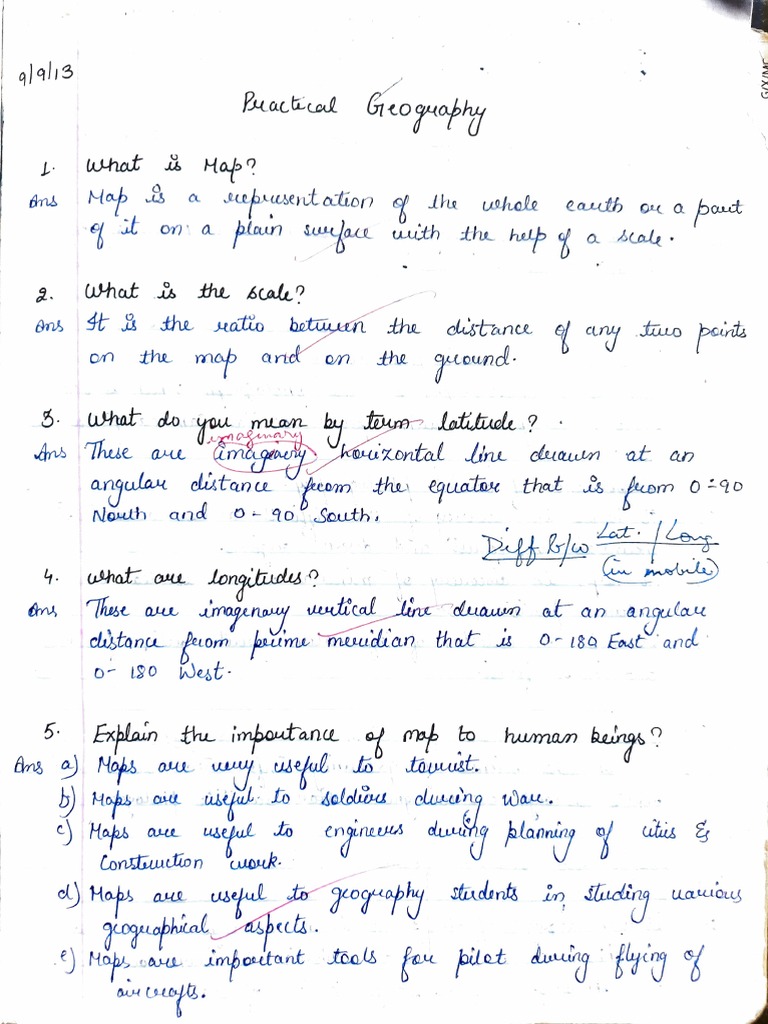 9/9/13
Practical Geography
1. What is Map?
Ans Map is a representation of the whole earth or a part
of it on a plain surface with the help of a scale.
2. What is the scale?
Ans It is the ratio between the distance of any two points
on the map and on the ground.
3. What do you mean by term latitude?
imaginary
Ans These are imagenary horizontal line drawn at an
angular distance from the equator that is from 0-90
North and 0-90 South.
Diff B/w Lat. / Long
(in mobile)
4. What are longitudes?
Ans These are imagenary vertical line drawn at an angular
distance from prime meridian that is 0-180 East and
0-180 West.
5. Explain the importance of map to human beings?
Ans a) Maps are very useful to tourist.
b) Maps are useful to soldiers during war.
c) Maps are useful to engineers during planning of cities &
Construction work.
d) Maps are useful to geography students in studing various
geographical aspects.
e) Maps are important tools for pilot during flying of
aircrafts.